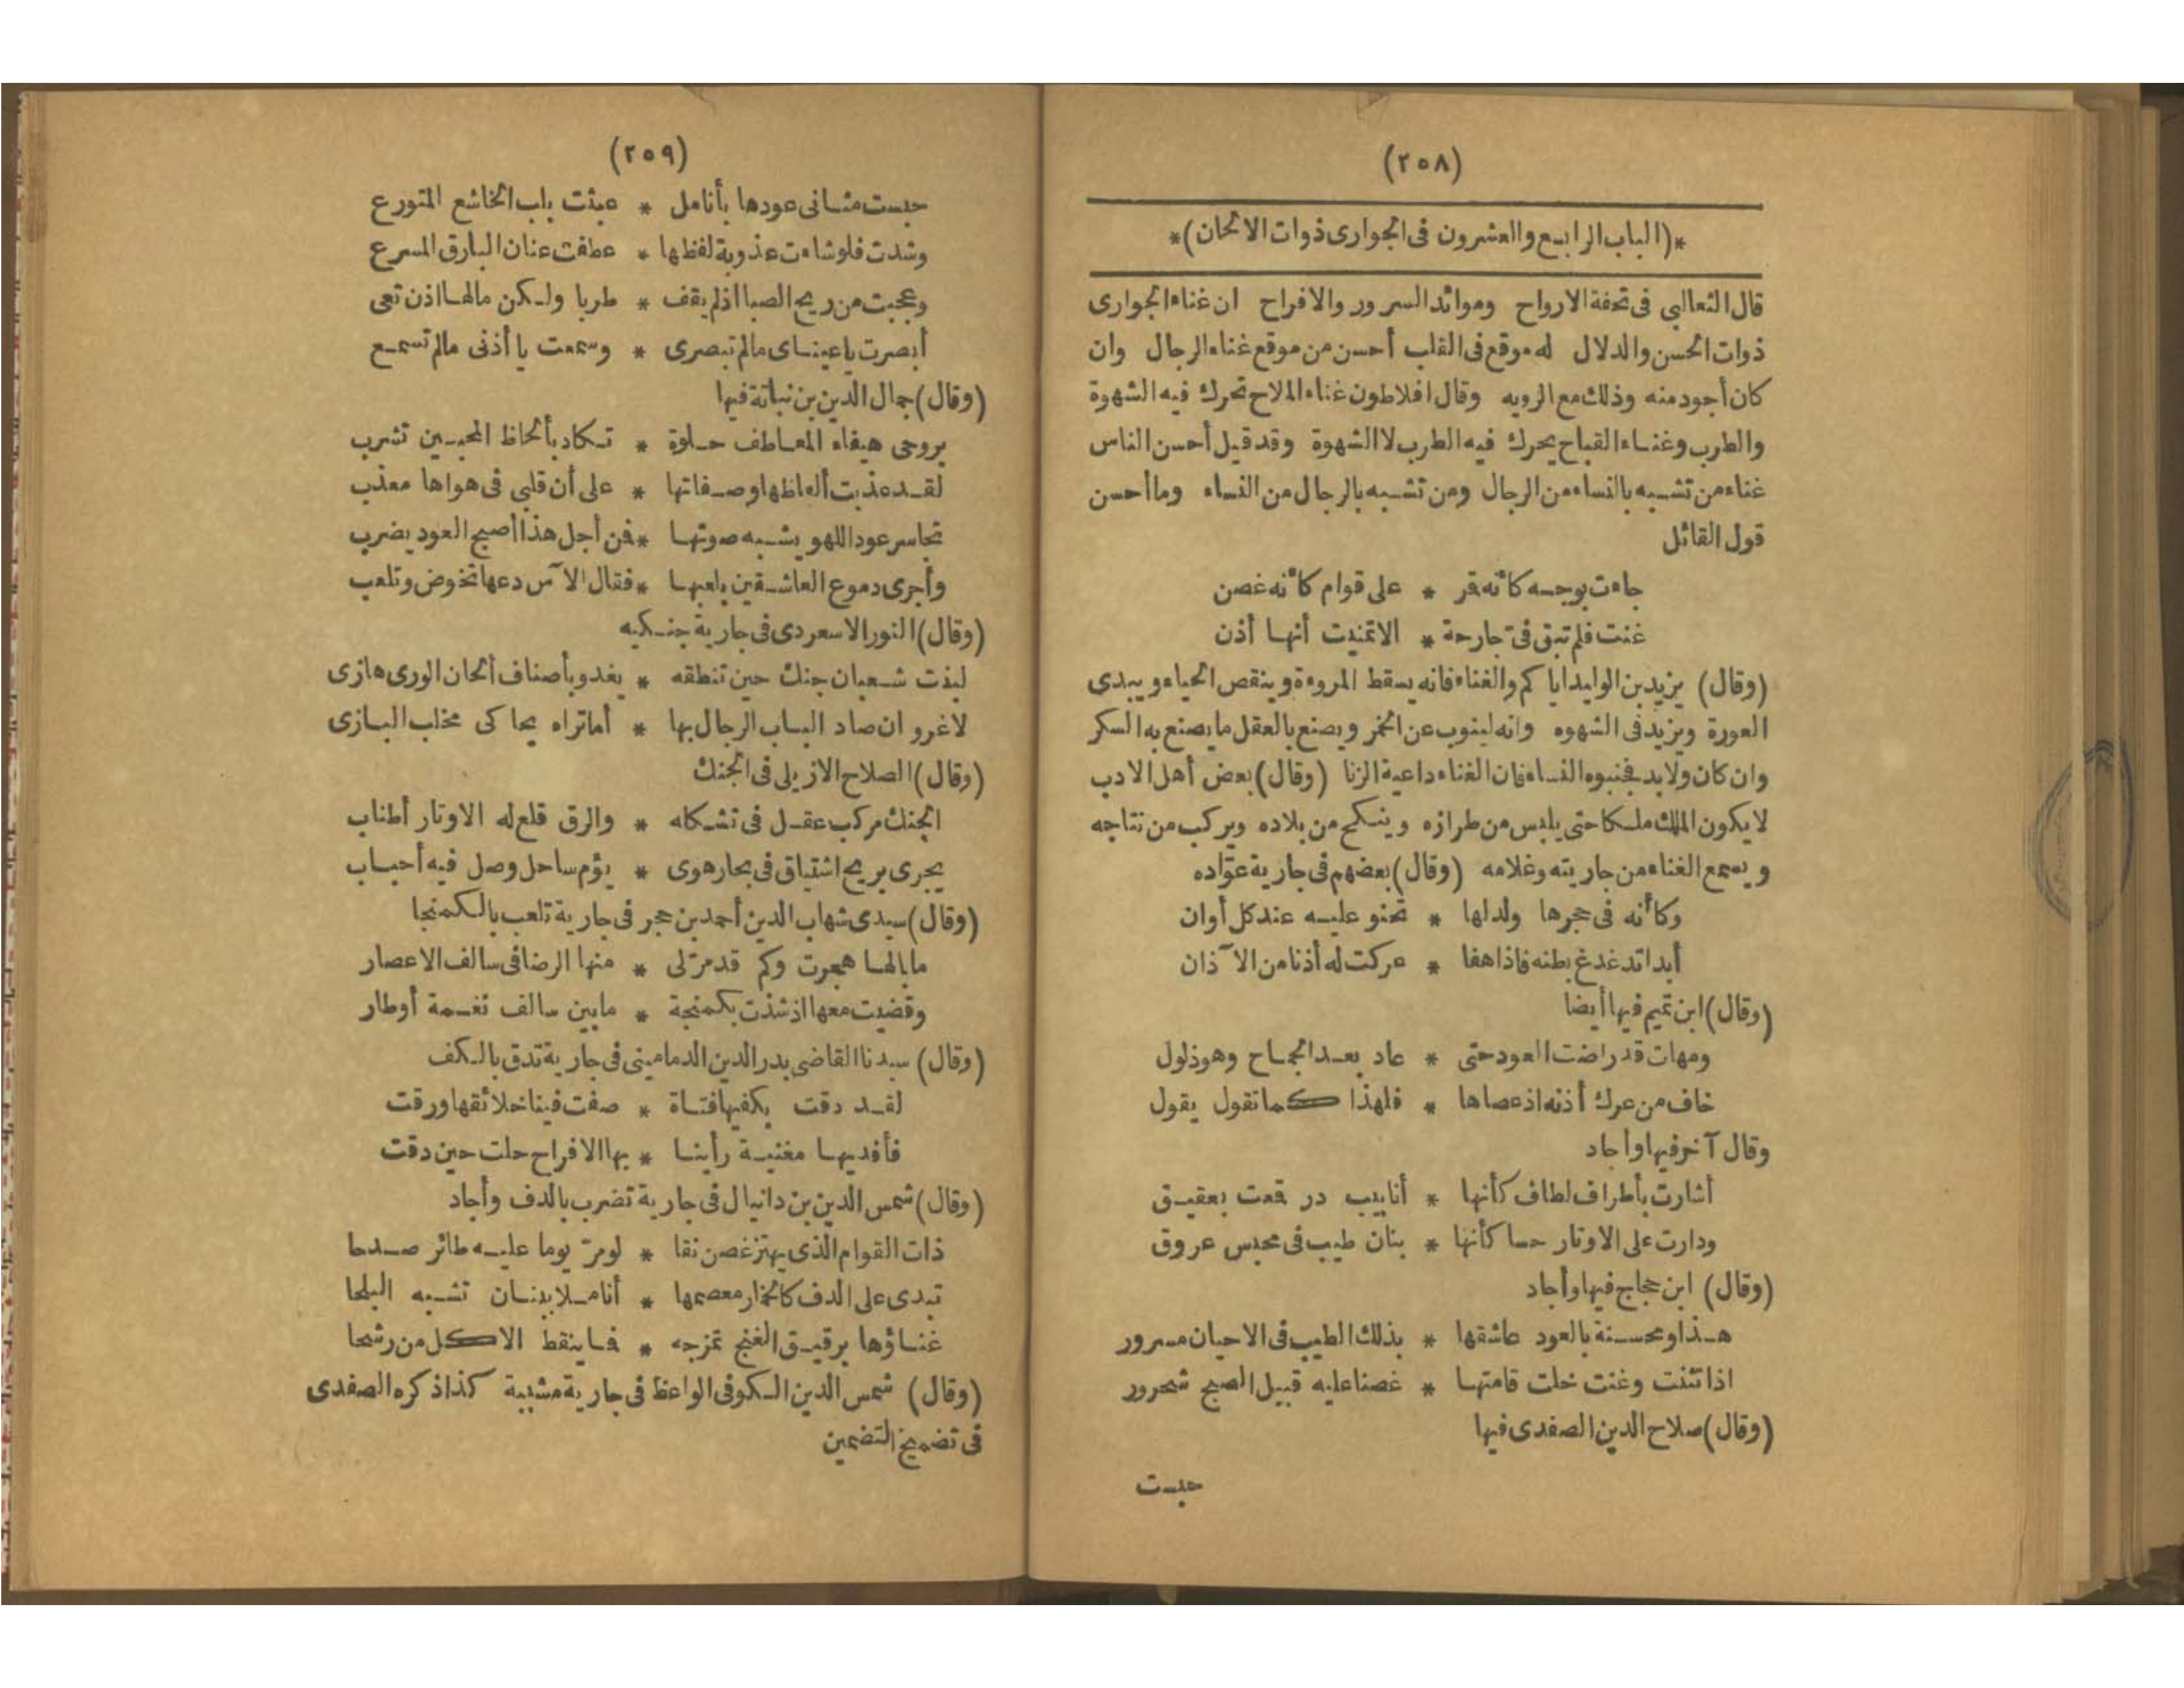 (٢٥٨)
*(الباب الرابع والعشرون فى الجوارى ذوات الالحان)*
قال الثعالبي فى تحفة الارواح وموائد السرور والافراح ان غناء الجوارى
ذوات الحسن والدلال له موقع فى القلب أحسن من موقع غناء الرجال وان
كان أجود منه وذلك مع الرويه وقال افلاطون غناء الملاح تحرك فيه الشهوة
والطرب وغناء القباح يحرك فيه الطرب لا الشهوة وقد قيل أحسن الناس
غناء من تشبه بالنساء من الرجال ومن تشبه بالرجال من النساء وما أحسن
قول القائل
جاءت بوجه كأنه قمر * على قوام كأنه غصن
غنت فلم تبق فى جارحة * الا تمنيت أنها أذن
(وقال) يزيد بن الوليد ايا كم والغناء فانه يسقط المروءة وينقص الحياء ويبدى
العورة ويزيد فى الشهوه وانه لينوب عن الخمر ويصنع بالعقل ما يصنع به السكر
وان كان ولابد فجنبوه النساء فان الغناء داعية الزنا (وقال) بعض أهل الادب
لا يكون الملك ملكا حتى يلبس من طرازه وينكح من بلاده ويركب من نتاجه
ويسمع الغناء من جاريته وغلامه (وقال) بعضهم فى جارية عوّاده
وكأنه فى حجرها ولد لها * تحنو عليه عند كل أوان
أبدا تدغدغ بطنه فاذا هفا * عركت له أذنا من الآذان
(وقال) ابن تميم فيها أيضا
ومهات قد راضت العود حتى * عاد بعد الجماح وهو ذلول
خاف من عرك أذنه اذ عصاها * فلهذا كما تقول يقول
وقال آخر فيها وأجاد
أشارت بأطراف لطاف كأنها * أنابيب در قمعت بعقيق
ودارت على الاوتار حسا كأنها * بنان طبيب فى مجس عروق
(وقال) ابن حجاج فيها وأجاد
هذا ومحسنة بالعود عاشقها * بذلك الطيب فى الاحيان مسرور
اذا تثنت وغنت خلت قامتها * غصنا عليه قبيل الصبح شحرور
(وقال) صلاح الدين الصفدى فيها
جست
(٢٥٩)
جست مثانى عودها بأنامل * عبثت بلب الخاشع المتورع
وشدت فلو شاءت عذوبة لفظها * عطفت عنان البارق المسرع
وعجبت من ريح الصبا اذ لم يقف * طربا ولكن مالها اذن تعى
أبصرت يا عيناى مالم تبصرى * وسمعت يا أذنى مالم تسمع
(وقال) جمال الدين بن نباتة فيها
بروحى هيفاء المعاطف حلوة * تكاد بألحاظ المحبين تشرب
لقد عذبت ألفاظها وصفاتها * على أن قلبى فى هواها معذب
تجاسر عود اللهو يشبه صوتها * فمن أجل هذا أصبح العود يضرب
وأجرى دموع العاشقين بلعبها * فقال الآس دعها تخوض وتلعب
(وقال) النور الاسعردى فى جارية جنكيه
لبذت شعبان جنك حين تنطقه * يغدو بأصناف ألحان الورى هازى
لا غرو ان صاد الباب الرجال بها * أما تراه يحاكى مخلب البازى
(وقال) الصلاح الاربلى فى الجنك
الجنك مركب عقل فى تشكله * والرق قلع له الاوتار أطناب
يجرى بريح اشتياق فى بحار هوى * يؤم ساحل وصل فيه أحباب
(وقال) سيدى شهاب الدين أحمد بن حجر فى جارية تلعب بالكمنجا
ما بالها هجرت وكم قد مرّلى * منها الرضا فى سالف الاعصار
وقضيت معها اذ شذت بكمنجة * ما بين سالف نغمة أوطار
(وقال) سيدنا القاضى بدر الدين الدمامينى فى جارية تدق بالكف
لقد دقت بكفيها فتاة * صفت فينا خلائقها ورقت
فأفديها مغنية رأينا * بها الافراح حلت حين دقت
(وقال) شمس الدين بن دانيال فى جارية تضرب بالدف وأجاد
ذات القوام الذى يهتز غصن نقا * لو مرّ يوما عليه طائر صدحا
تبدى على الدف كالخمار معصمها * أناملا ببنان تشبه البلحا
غناؤها برقيق الغنج تمزجه * فما ينقط الا كل من رشحا
(وقال) شمس الدين الكوفى الواعظ فى جارية مشببة كذا ذكره الصفدى
فى تضميخ التضمين